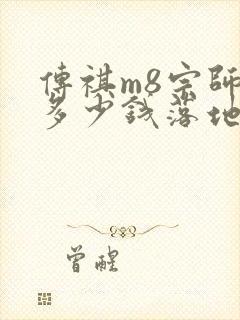 傳祺m8宗師
多少錢落地
曾醒